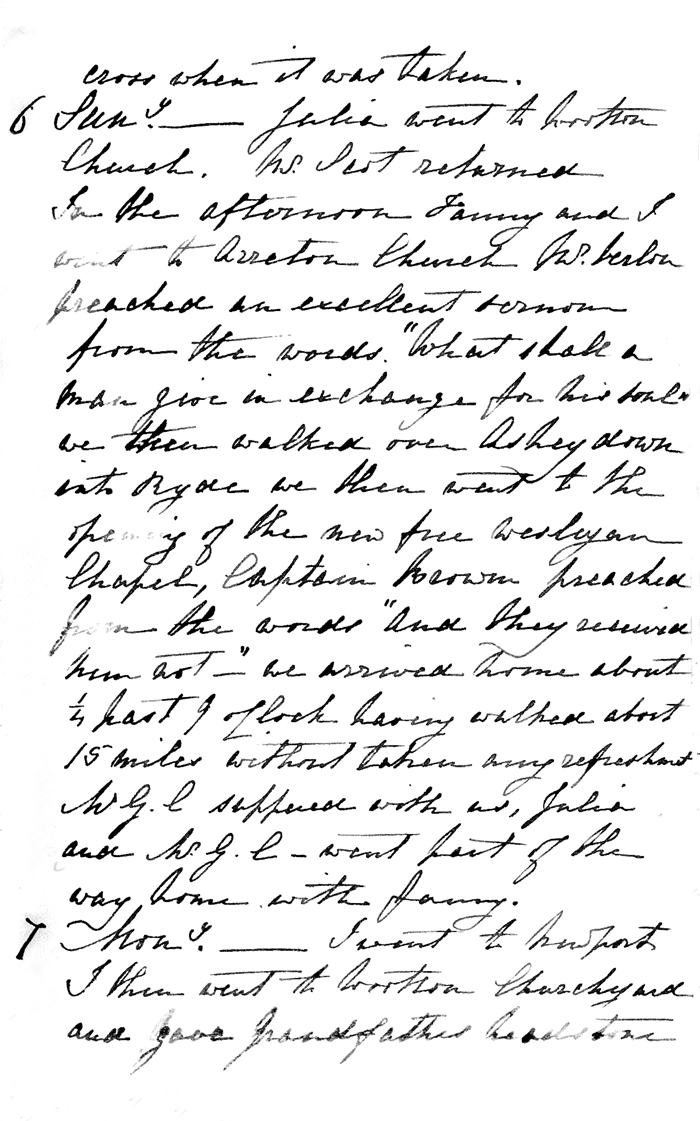 cross when it was taken.
6 Sun.y — Julia went to Wootton
Church. Mr. Scot returned
In the afternoon Fanny and I
went to Arreton Church Mr.
preached an excellent sermon
from the words. "What shall a
man give in exchange for his soul"
we then walked over Ashey down
into Ryde we then went to the
opening of the new free Wesleyan
Chapel, Captain Brown preached
from the words "And they received
him not —" we arrived home about
¼ past 9 oClock having walked about
15 miles without taken any refreshmt
Mr G. C supped with us, Julia
and Mr. G. C — went part of the
way home with Fanny.
7 Mon.y. — I went to Newport
I then went to Wootton Churchyard
and gave Grandfathers headstone